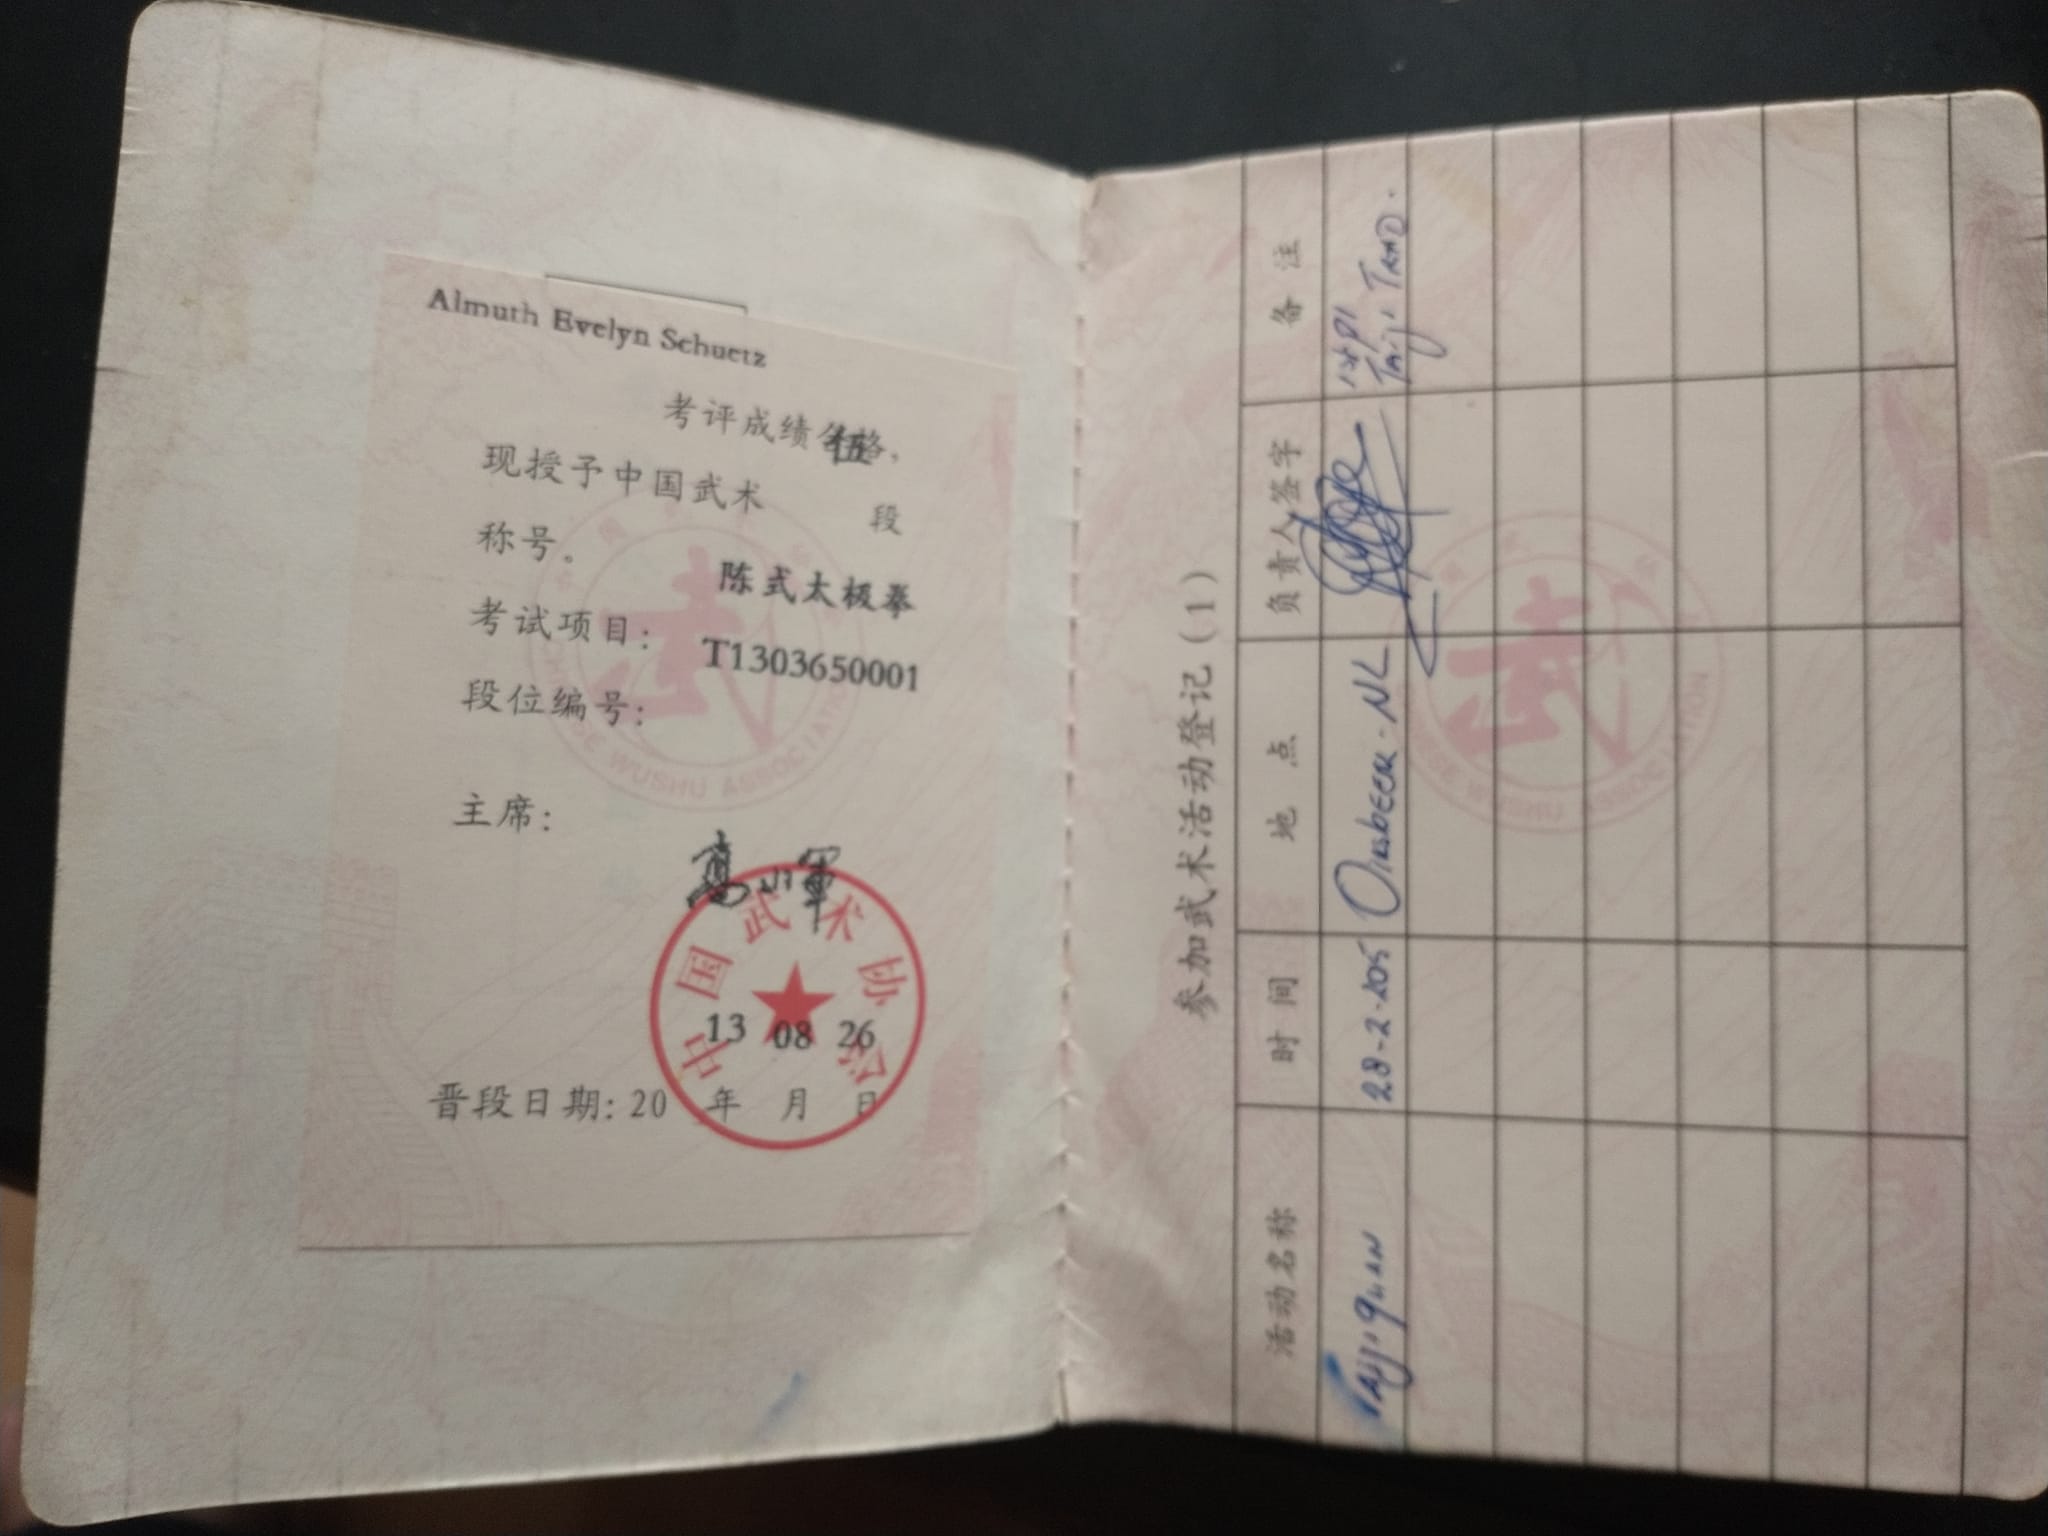 Almuth Evelyn Schuetz
考评成绩合格,
现授予中国武术 伍 段
称号。
考试项目: 陈式太极拳
段位编号: T1303650001
主席:
高小軍
中国武术协会
晋段日期: 20 13 年 08 月 26 日
CHINESE WUSHU ASSOCIATION
参加武术活动登记(1)
活动名称 时间 地点 负责人签字 备注
Taijiquan 28-2-205 Oirsbeek-NL 1st Pl Taiji TRAD.
CHINESE WUSHU ASSOCIATION